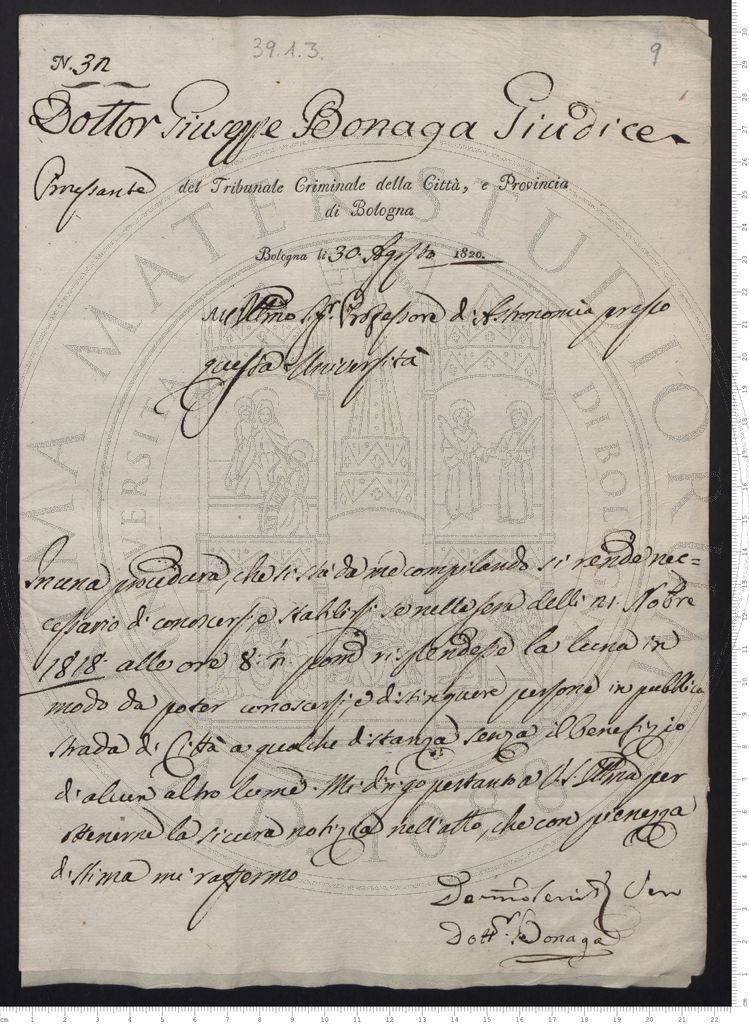 39.1.3.
9
N. 32
Dottor Giuseppe Bonaga Giudice
Processante del Tribunale Criminale della Città, e Provincia
di Bologna
Bologna li 30. Agosto 1820.
All'Illmo Sigr. Professore di Astronomia presso
questa Università
In una procedura, che si stà da me compilando si rende nec=
cessario di conoscersi, e stabilirsi se nella sera delli 21. Nobre
1818. alle ore 8. pomne risplendesse la luna in
modo da poter conoscersi, e distinguere persone in pubblica
strada di Città a qualche distanza senza il benefizio
di alcun altro lume. Mi dirigo pertanto a V.S. Illma per
ottenerne la sicura notizia nell'atto, che con pienezza
di stima mi raffermo
Dottr. Bonaga
ALMA MATER STUDIORUM
UNIVERSITÀ DI BOLOGNA
A.D. 1088